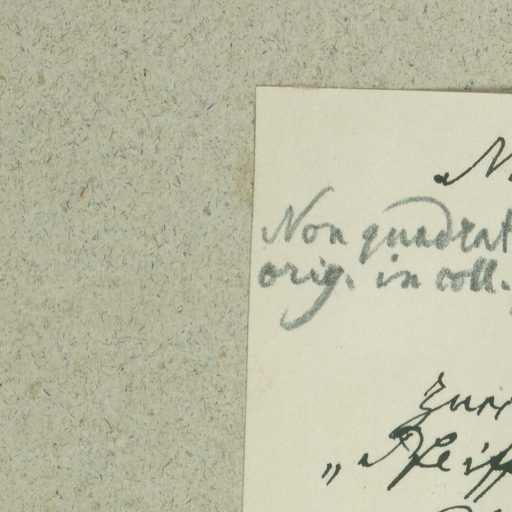 Non quadrat
orig. in coll.
„Pfeiff